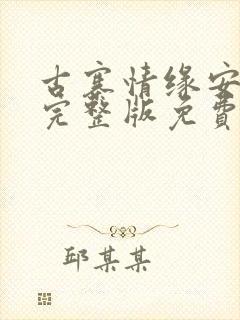 古寨情缘安
完整版免費
邱某某